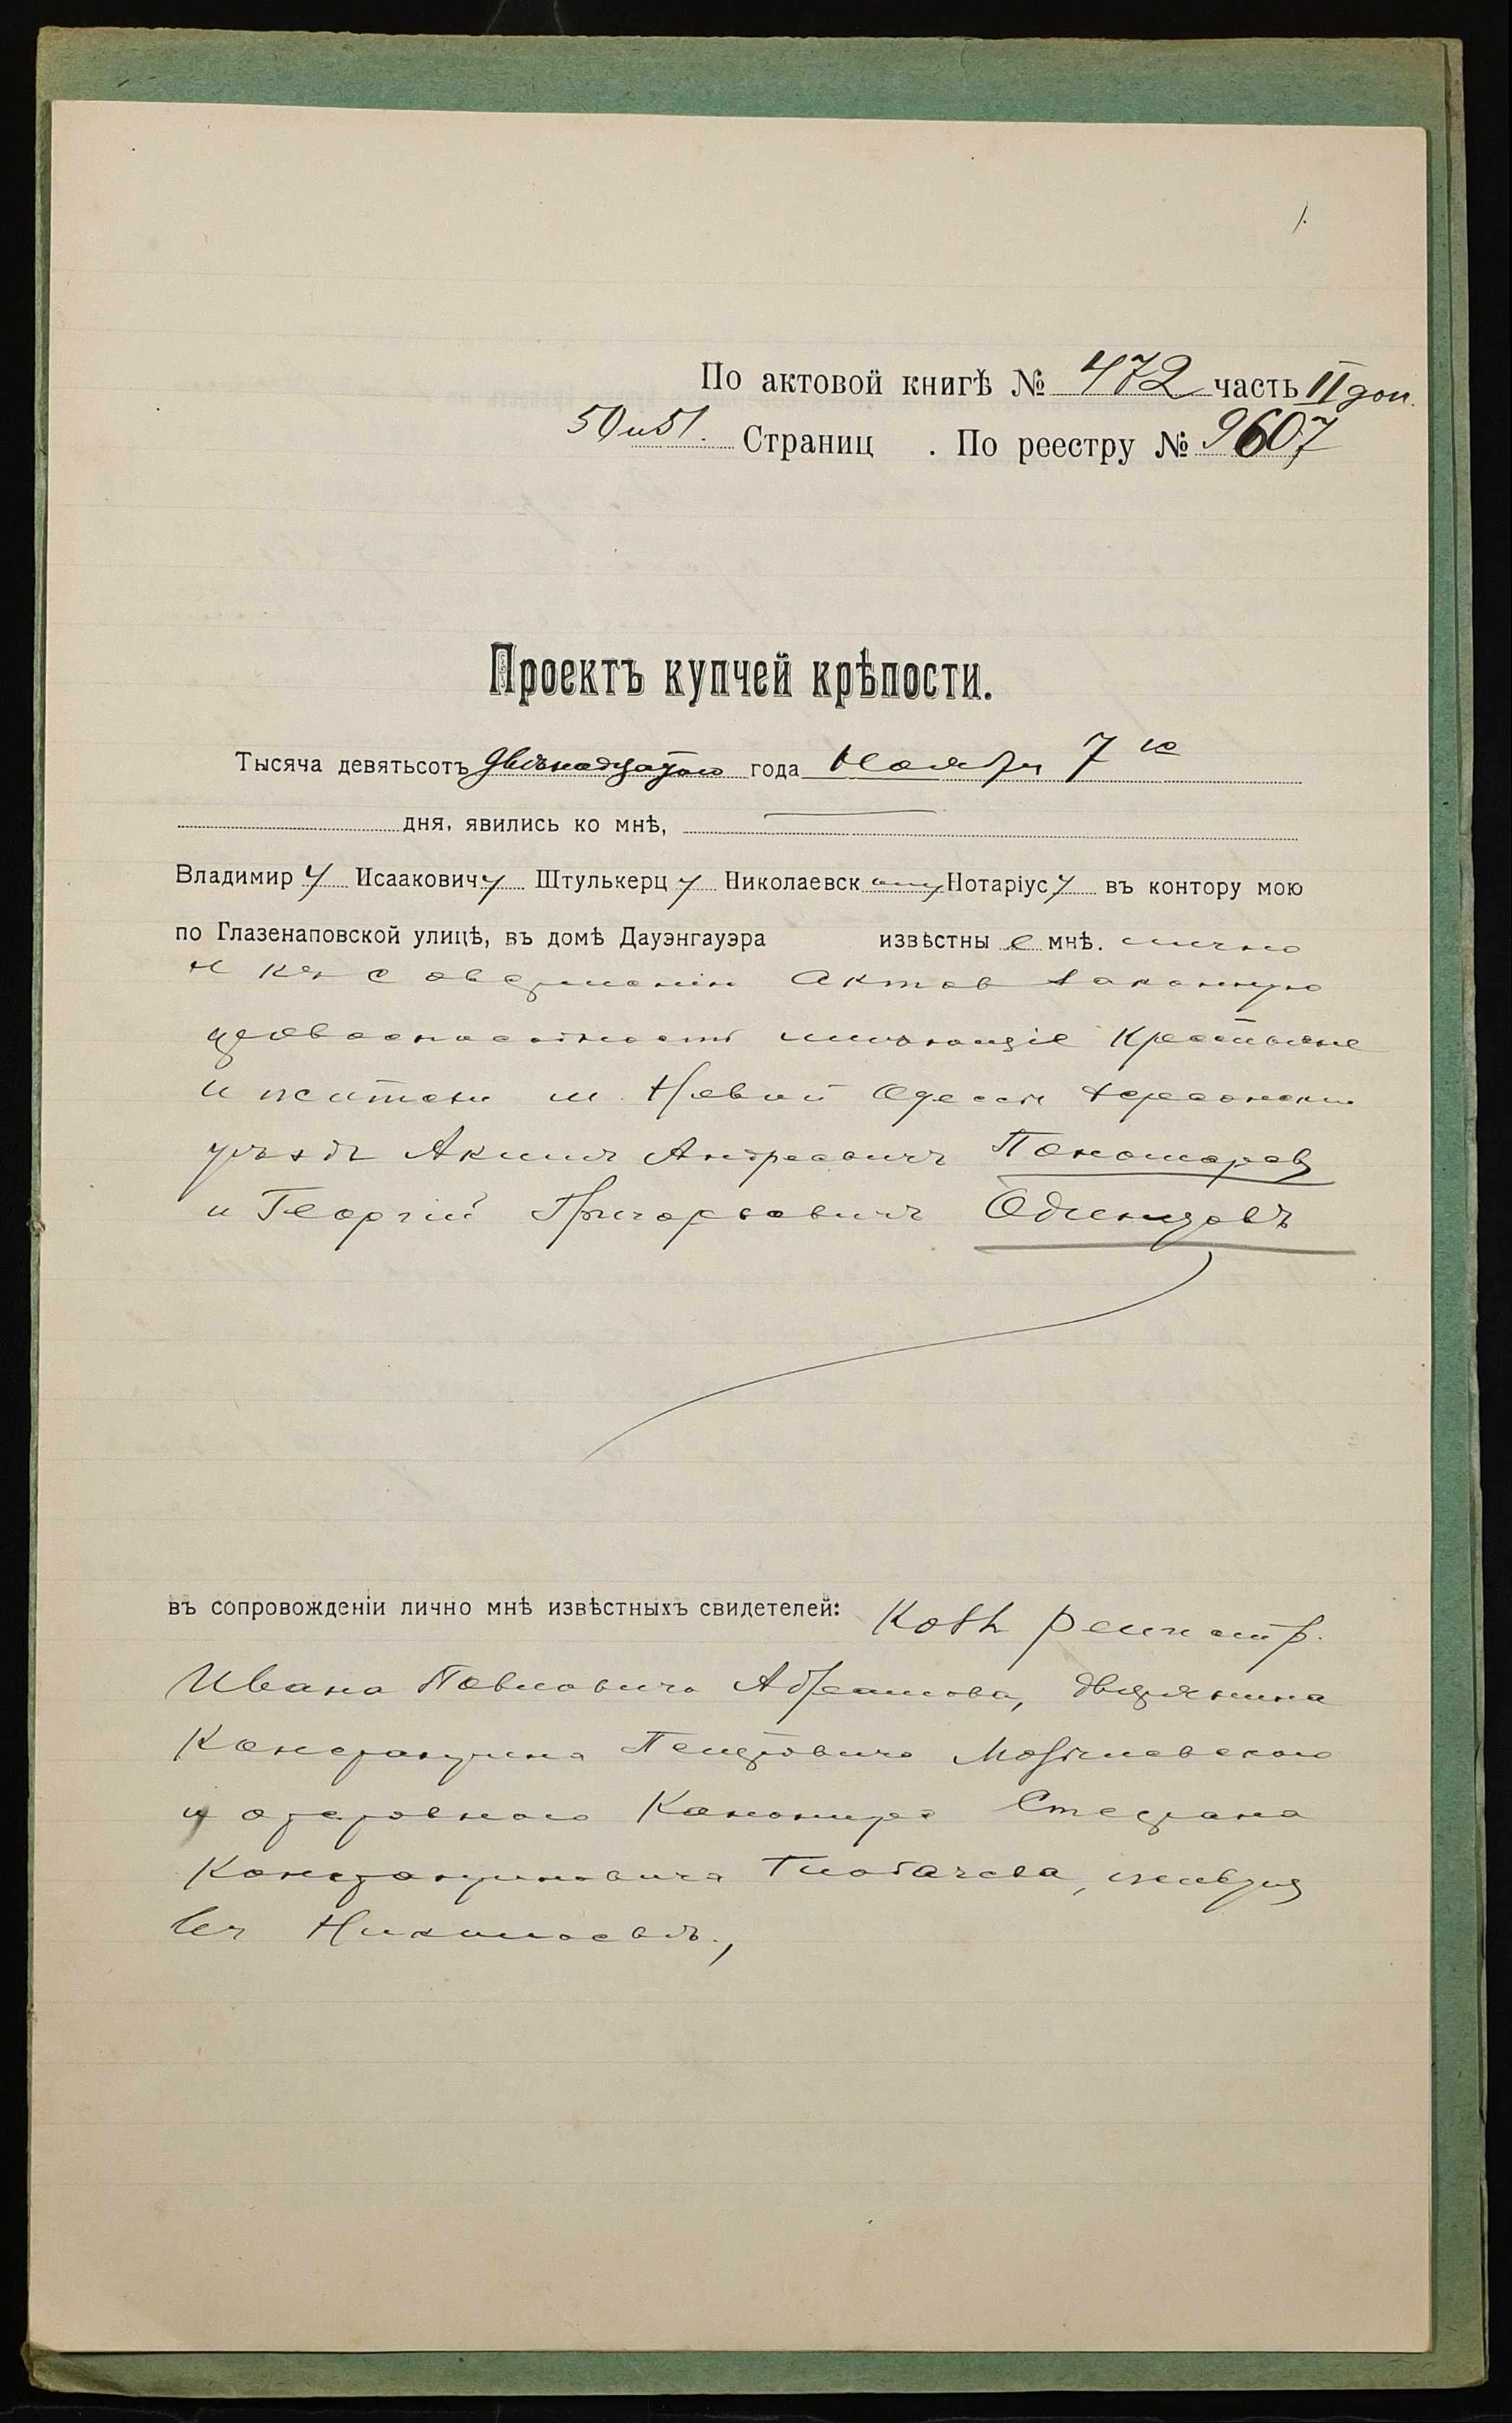 1.
По актовой книгѣ № 472 часть II доп.
50 и 51. Страниц . По реестру № 9607
Проектъ купчей крѣпости.
Тысяча девятьсотъ двѣнадцатаго года Ноября 7 го
дня, явились ко мнѣ,
Владимир у Исаакович у Штулькерц у Николаевск ому Нотаріус у въ контору мою
по Глазенаповской улицѣ, въ домѣ Дауэнгауэра извѣстны е мнѣ. лично
и къ совершенію актов законную
правоспособность имѣющіе Крестьяне
и жители м. Новой Одессы Херсонскаго
уѣзда Акимъ Андреевичъ Пономарев
и Георгій Григорьевичъ Одинцовъ
въ сопровожденіи лично мнѣ извѣстныхъ свидетелей: Кол. регистр.
Ивана Павловича Абрамова, дворянина
Константина Петровича
и отставного Канонира Степана
Константиновича живущ
въ Николаевѣ.,